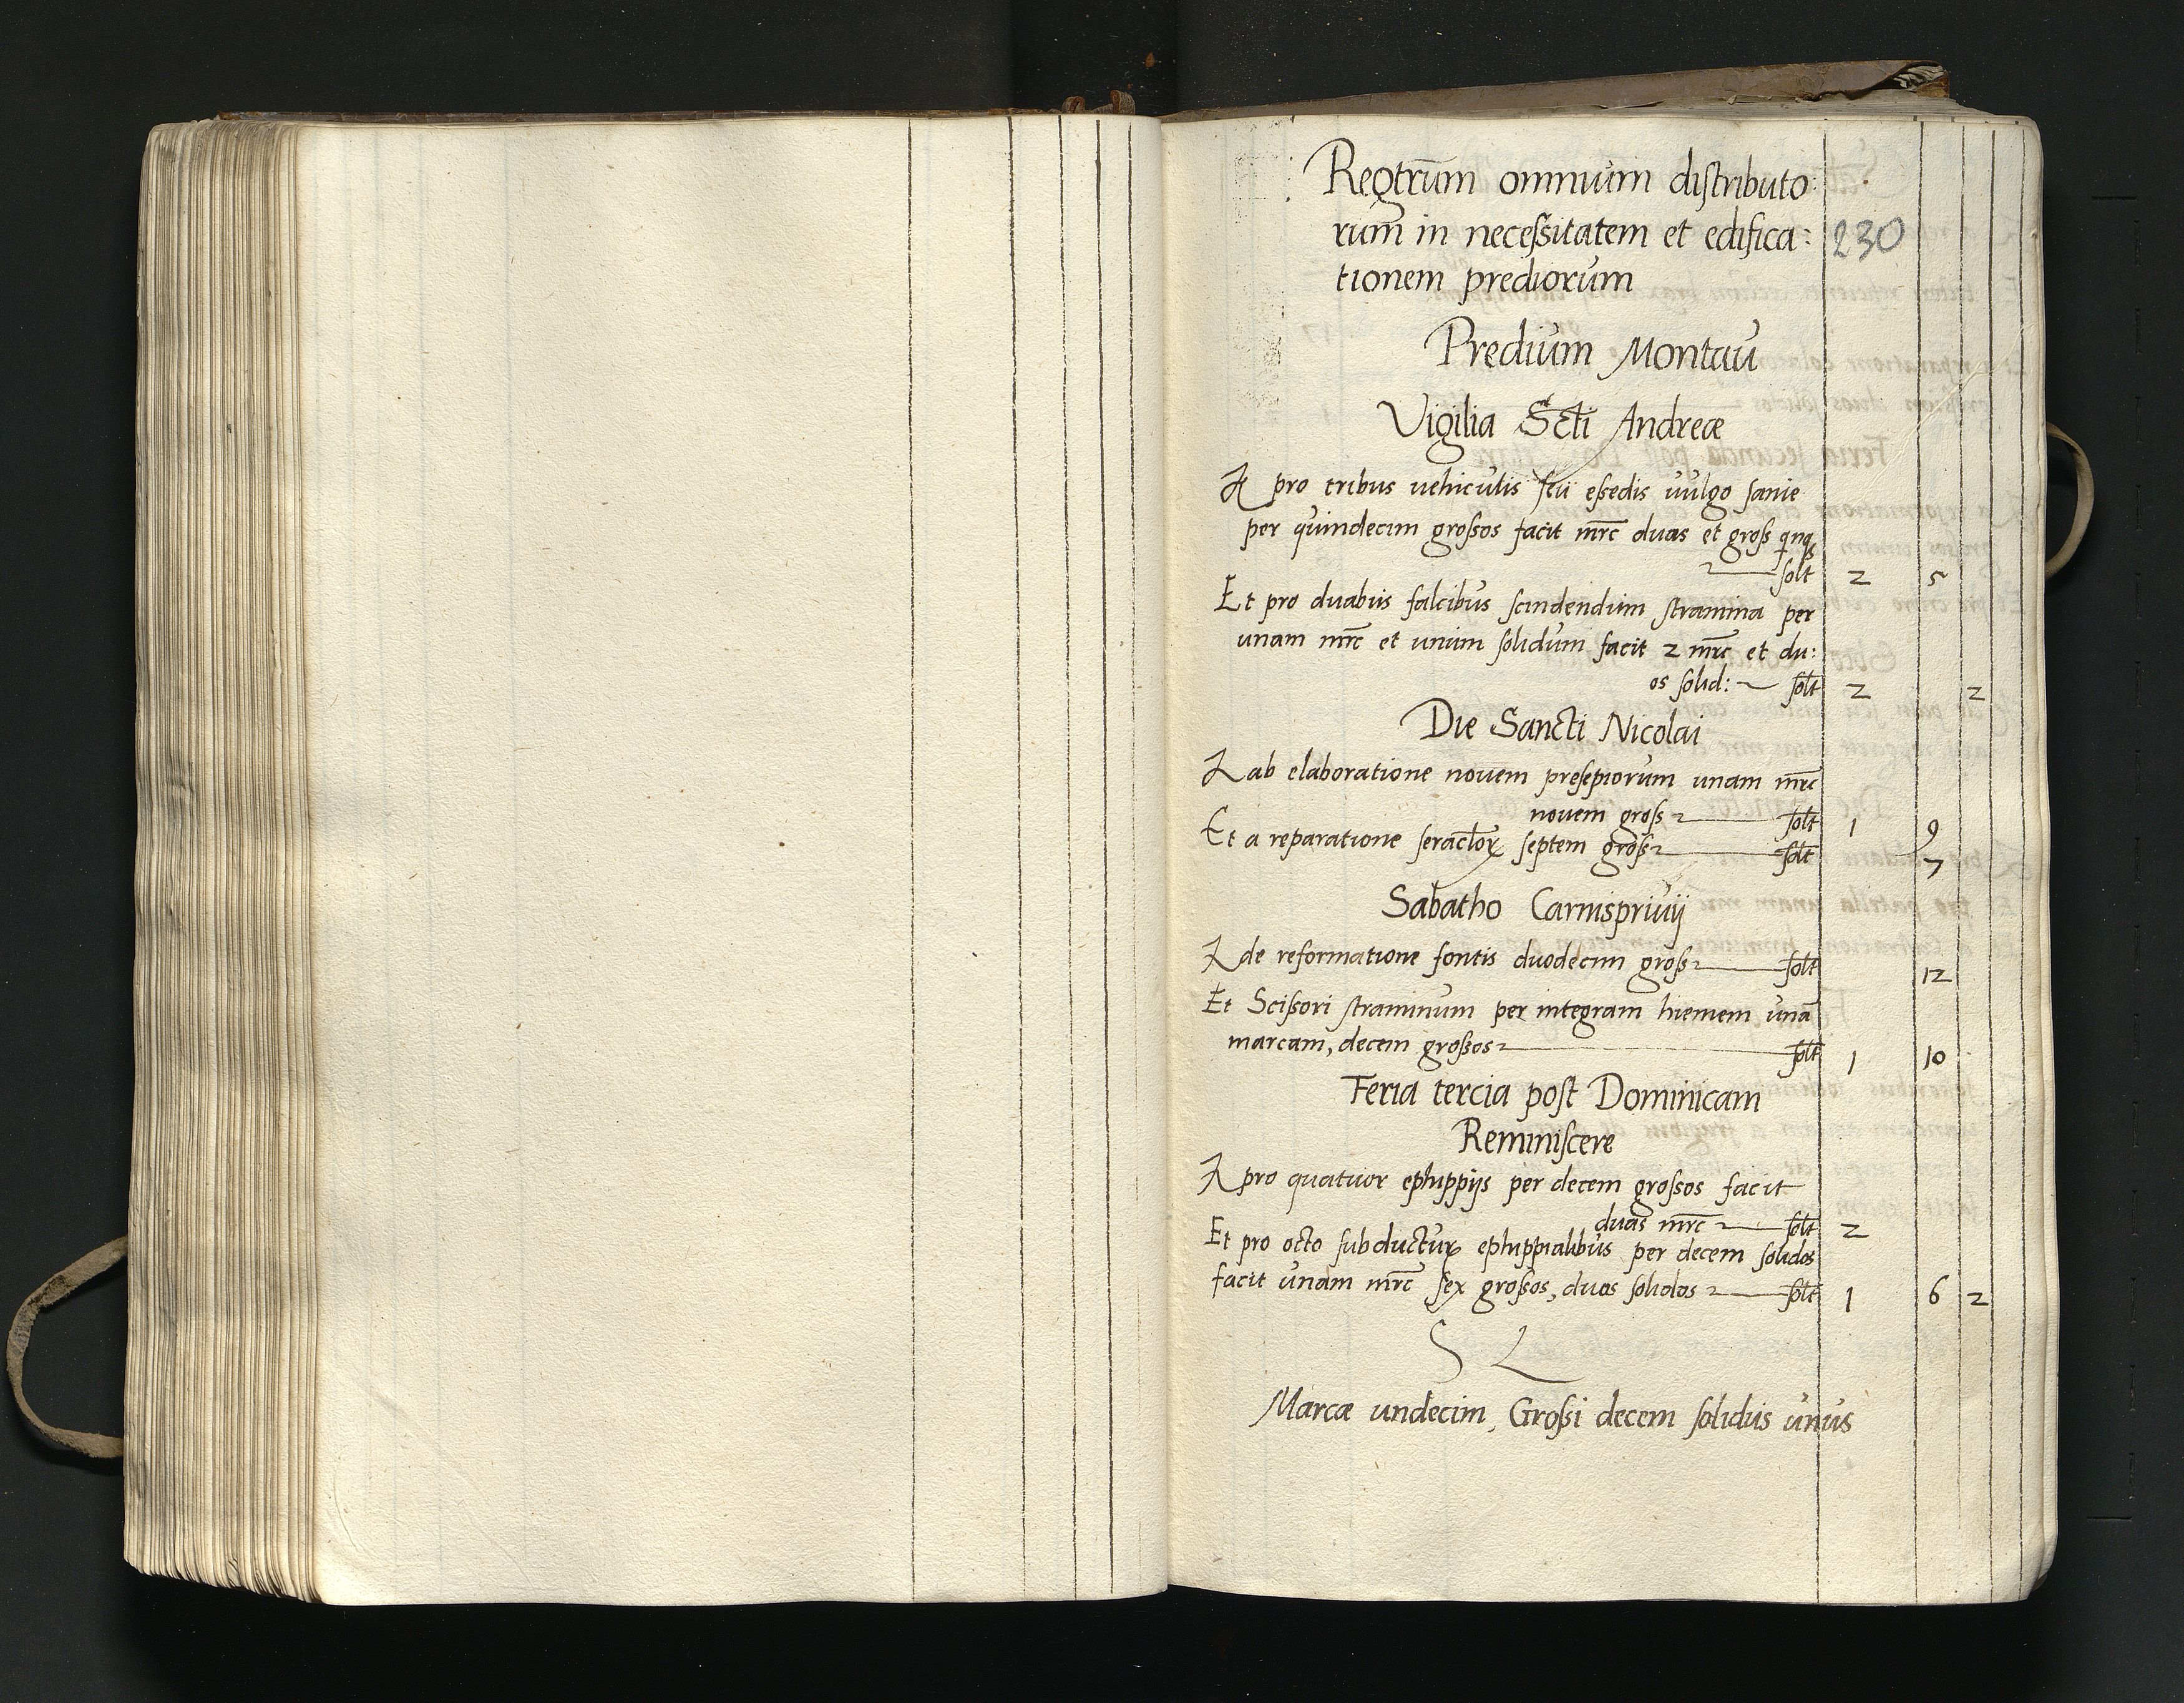 Regtrum omnium distributo:
rum in necessitatem et edifica:
230
tionem prediorum
Predium Montau
Vigilia Scti Andreæ
pro tribus uehiculis seu essedis vulgo sanie
per quindecim grossos facit mrc duas et gross qnq
solt 2 5
Et pro duabus falcibus scindendum stramina per
unam mrc et unum solidum facit 2 mrc et du:
os solid: solt 2 2
Die Sancti Nicolai
ab elaboratione nouem presepiorum unam mrc
nouem gross solt 1 9
Et a reparatione septem gross solt 7
Sabatho Carnispriuij
de reformatione fontis duodecim gross solt 12
Et Scissori straminum per integram hiemem una
marcam, decem grossos solt 1 10
Feria tercia post Dominicam
Reminiscere
pro quatuor ephippijs per decem grossos facit
duas mrc solt 2
Et pro octo ephippialibus per decem solidos
facit unam mrc sex grossos, duos solidos solt 1 6 2
S L
Marcæ undecim, Grossi decem solidus unus